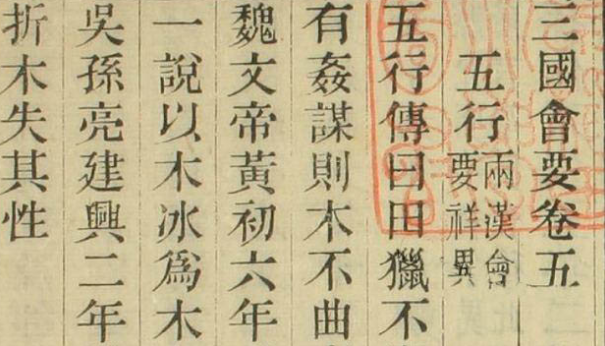 三國會要卷五
五行兩漢會要祥異
五行傳曰田獵不
有姦謀則木不曲
魏文帝黃初六年
一說以木冰爲木
吳孫亮建興二年
折木失其性